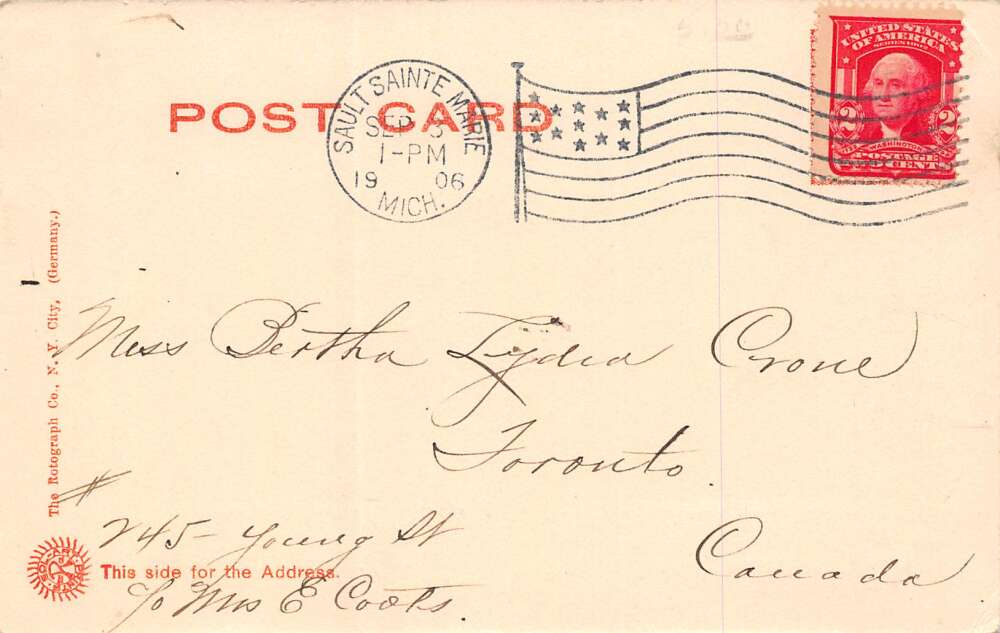 POST CARD
SAULT SAINTE MARIE
SEP 3
1-PM
19 06
MICH.
UNITED STATES
OF AMERICA
SERIES 1902
2 2
WASHINGTON
POSTAGE
TWO CENTS
The Rotograph Co., N. Y. City, (Germany.)
Miss Bertha Lydia Crone
Toronto
Canada
#
245- Young St
This side for the Address.
c/o Mrs E Coots.
SOL-ART PRINTS